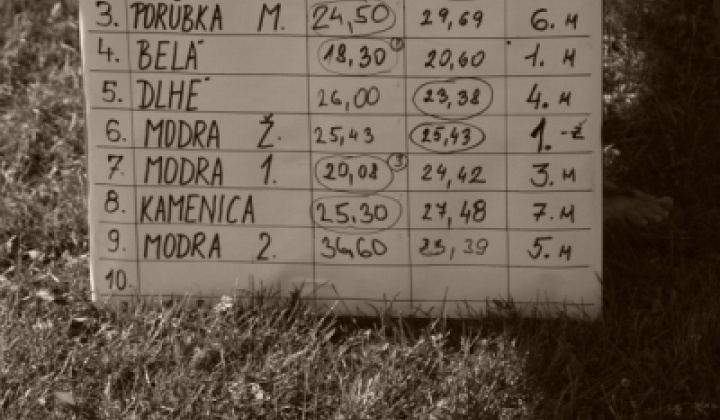 3. PORUBKA M. 24,50 29,69 6. M
4. BELÁ 18,30 1 20,60 1. M
5. DLHÉ 26,00 23,38 4. M
6. MODRA Ž. 25,43 25,43 1. -Ž
7. MODRA 1. 20,08 3 24,42 3. M
8. KAMENICA 25.30 27,48 7. M
9. MODRA 2. 5. M
10.